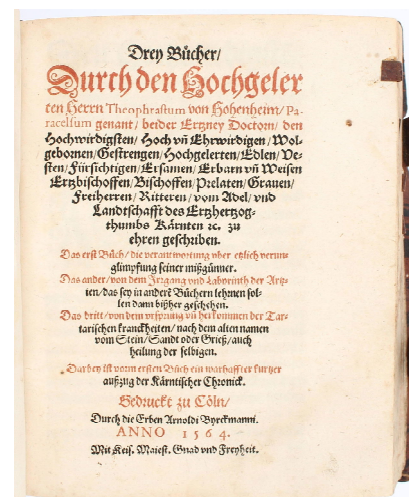 Drey Bücher/
Durch den Hochgeler
ten Herrn Theophrastum von Hohenheim/ Pa-
racelsum genant/ beider Ertzney Doctorn/ den
Hochwirdigsten/ Hoch uñ Ehrwirdigen/ Wol-
gebornen/ Gestrengen/ Hochgelerten/ Edlen/ Ve-
sten/ Fürsichtigen/ Ersamen/ Erbarn uñ Weisen
Ertzbischoffen/ Bischoffen/ Prelaten/ Grauen/
Freiherren/ Ritteren/ vom Adel/ vnd
Landtschafft des Ertzhertzog-
thumbs Kärnten ꝛc. zu
ehren geschriben.
Das erst Büch/ die verantwortung vber etzlich verun-
glimpfung seiner mißgünner.
Das ander/ von dem Irrgang vnd Labyrinth der Artz-
ten/ das sey in anderẽ Büchern lehrnen sol-
len dann bißher geschehen.
Das dritt/ von dem vrsprung uñ herkommen der Tar-
tarischen kranckheiten/ nach dem alten namen
vom Stein/ Sandt oder Grieß/ auch
heilung der selbigen.
Darbey ist vorm ersten Büch ein warhaffter kurtzer
außzug der Kärntischer Chronick.
Gedruckt zu Cöln/
Durch die Erben Arnoldi Byrckmanni.
ANNO 1564.
Mit Keis. Maiest. Gnad vnd Freyheit.